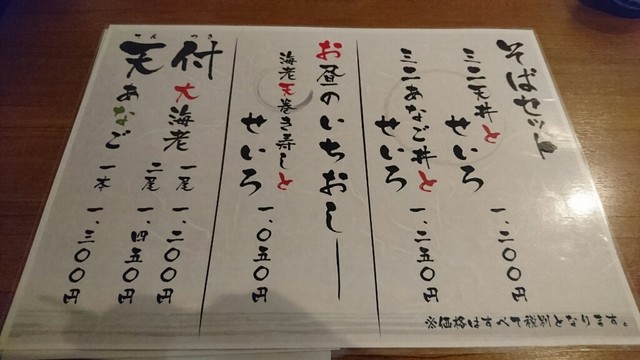 そばセット
ミニ天丼と
せいろ
一、二〇〇円
ミニあなご丼と
せいろ
一、二五〇円
お昼のいちおしー
海老天巻き寿しと
せいろ
一、〇五〇円
てん つき
天付
大海老
一尾 一、二〇〇円
二尾 一、四五〇円
あなご
一本 一、三〇〇円
※価格はすべて税別となります。